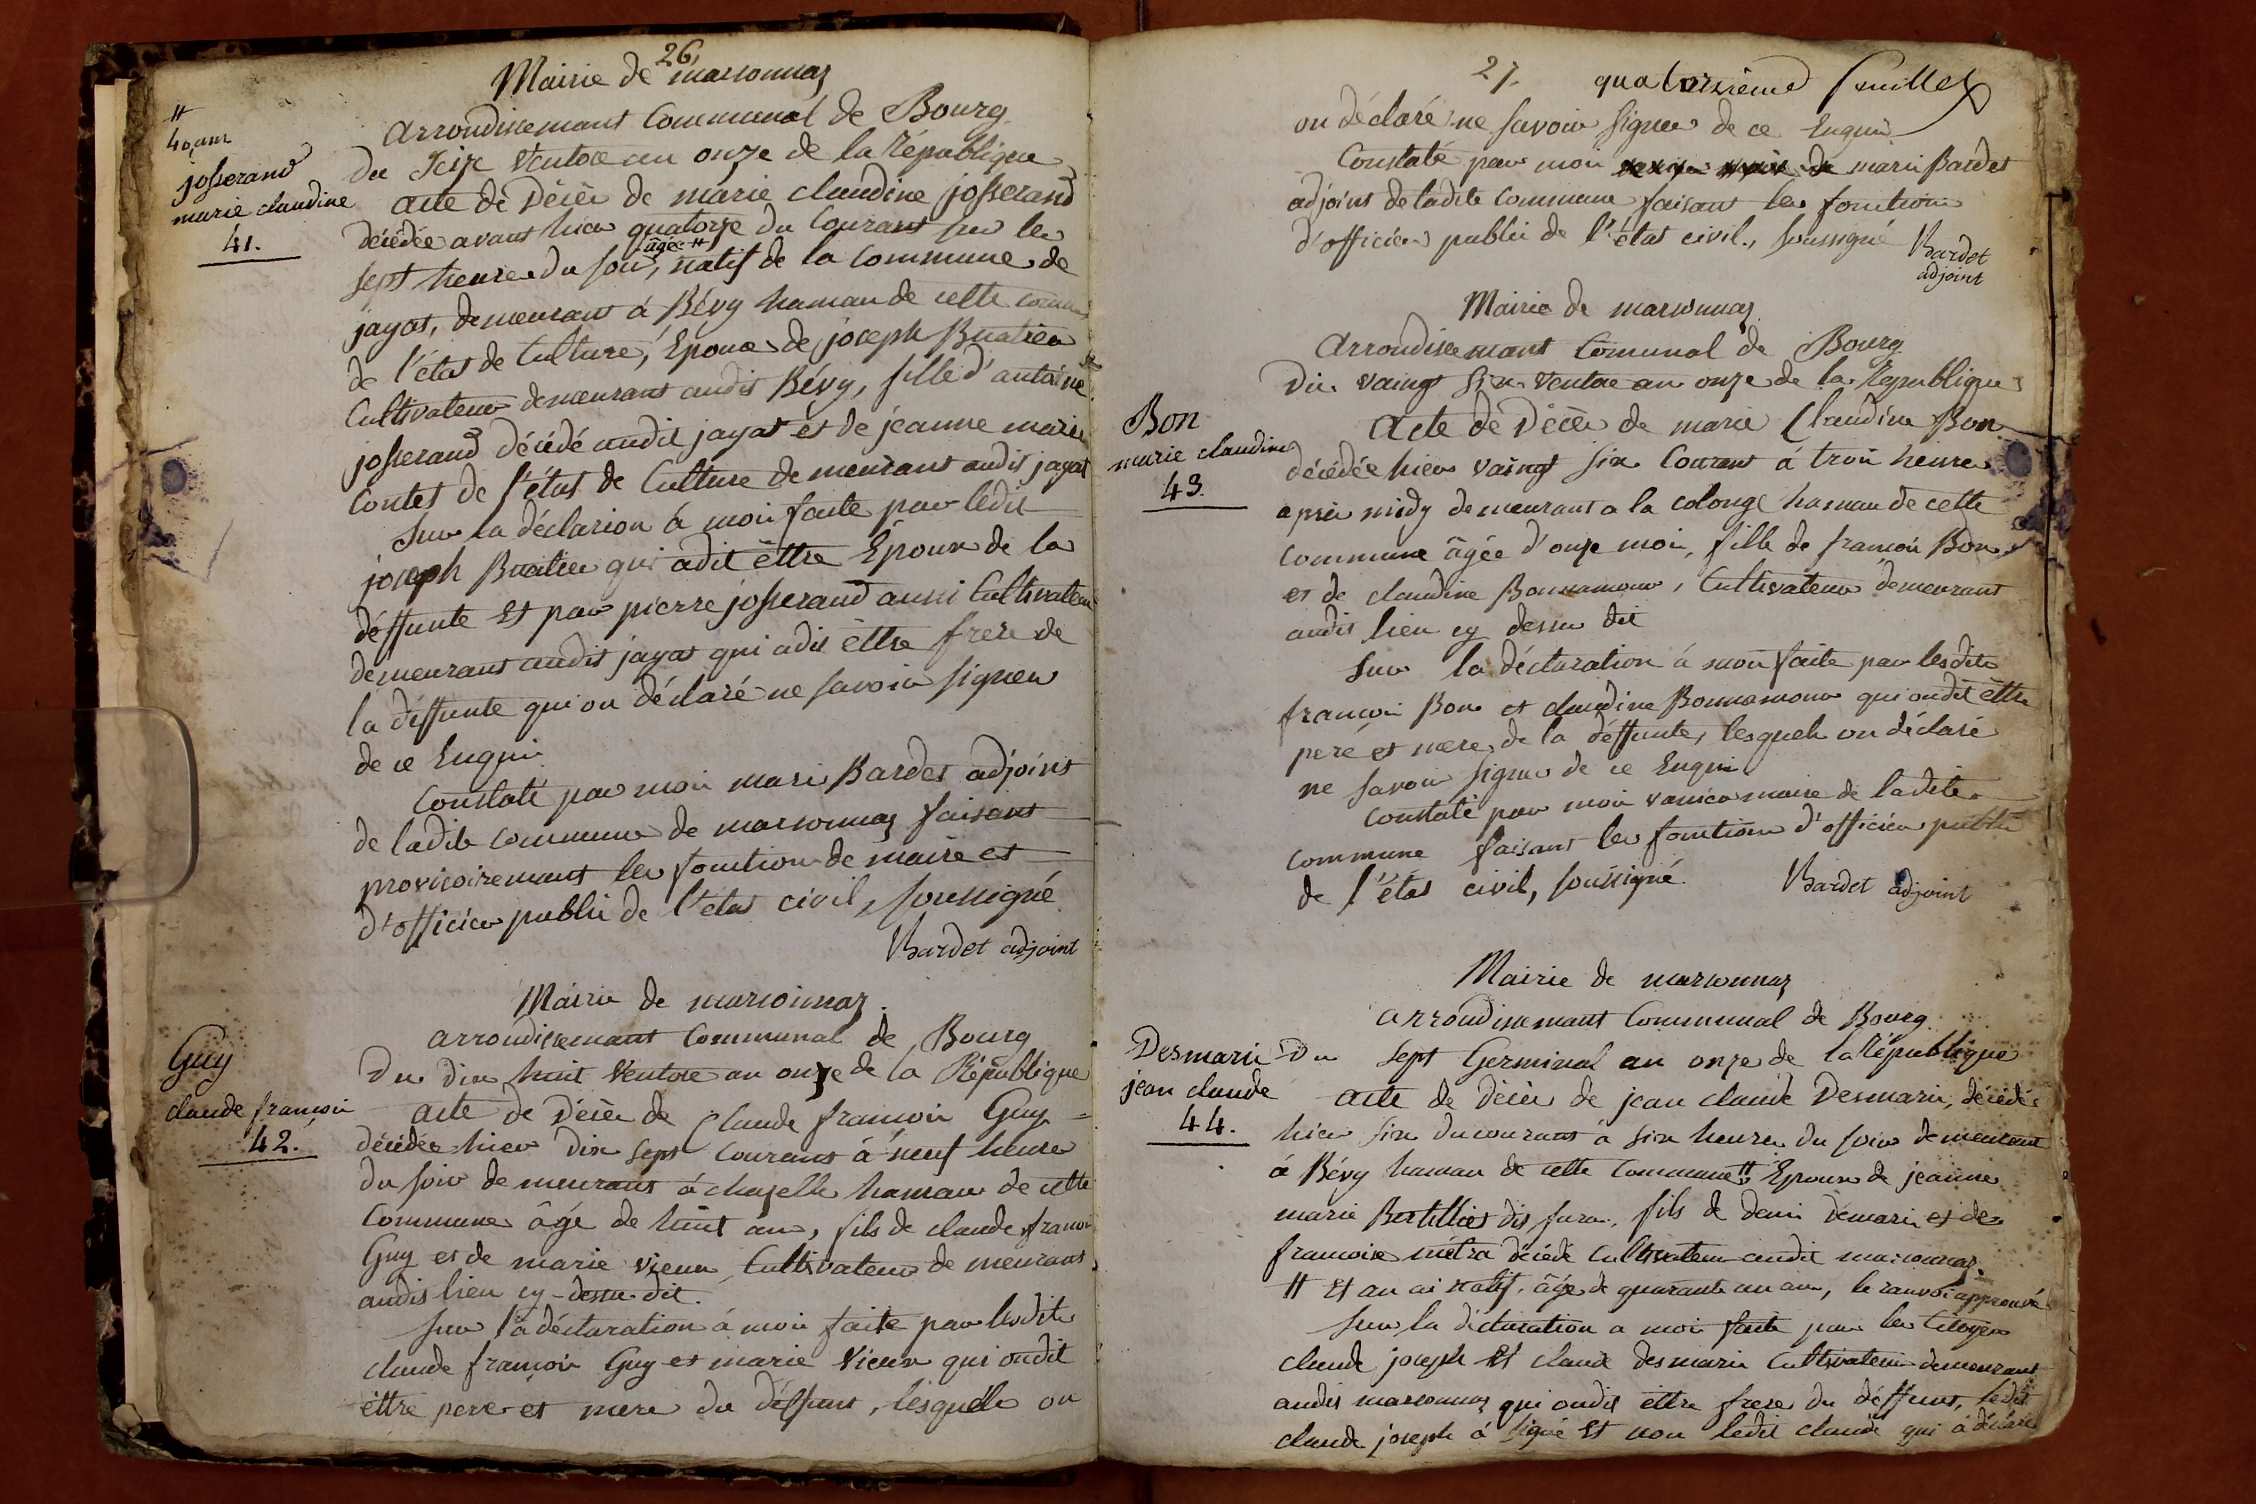 26
Mairie de marsonnaz
arrondissemant Communal de Bourg
du Seize Ventose an onze de la République
acte de Décès de marie claudine josserand
décédée avant hier quatorze du Courant sur les
âgée #
sept heures du soir, natif de la Commune de
jayat, demeurant à Bévy hamau de cette comune
de l'état de Culture, Epouse de joseph Buatier
Cultivateur demeurant audit Bévy, fille d'antoine
josserand décédé audit jayat et de jeanne marie
Contet de l'état de Culture demeurant audit jayat
Sur la déclarion à moi faite par ledit
joseph Buatier qui adit êttre Epoux de la
déffunte Et par pierre josserand aussi Cultivateur
demeurant audit jayat qui adit êttre frere de
la déffunte qui on déclaré ne savoir signer
de ce Enquis
Constaté par moi marie Bardet adjoint
de ladite commune de marsonnaz faisant
provisoiremant les fonction de maire et
d'officier public de l'état civil, soussigné
Bardet adjoint
#
40 ans
josserand
marie claudine
41.
Mairie de marsonnaz.
arrondissemant Communal de Bourg
Du dix huit Ventose an onze de la République
acte de Décès de Claude françois Guy
décédée hier dix sept Courant à neuf heure
du soir demeurant à chazelle hamau de cette
Commune âgé de huit ans, fils de claude françois
Guy et de marie vieux Cultivateur demeurant
audit lieu cy-dessu dit.
Sur la déclaration à moi faite par lesdits
claude françois Guy et marie Vieux qui ondit
êttre pere et mere du déffunt, lesquels on
Guy
claude françois
42.
27. quatorzième feuillet
on déclaré ne savoir signer de ce Enquis
Constaté par moi marie Bardet
adjoint de ladite Commune faisant les fonction
d'officier public de l'état civil, soussigné
Bardet
adjoint
Mairie de marsonnaz.
arrondissemant Comunal de Bourg
Du vaingt six Ventose an onze de la République
Acte de Décès de marie Claudine Bon
décédée hier vaingt six Courant à trois heures
après midy demeurant a la colonge hamau de cette
Commune âgée d'onze mois, fille de françois Bon
et de claudine Bonnamour, Cultivateur demeurant
audit lieu cy dessu dit
Sur la déclaration à moi faite par lesdits
françois Bon et claudine Bonnamour qui ondit êttre
pere et mere de la déffunte, lesquels on déclaré
ne savoir signer de ce Enquis
Constaté par moi vanier maire de ladite
commune faisant les fonction d'officier public
de l'état civil, soussigné Bardet adjoint
Bon
marie claudine
43.
Mairie de marsonnaz
arrondissemant Communal de Bourg
Du Sept Germinal an onze de la République
acte de Décès de jean claude Desmaris, décédé
hier six ducourant à six heures du soir demeurant
à Bévy hamau de cette Commune # Epoux de jeanne
marie Bertillier dit jura, fils de denis démaris et de
francoise métra décédé Cultivateur audit marsonnaz.
# Et an ai natif, âgé de quarante un ans, le ranvoi approuvé
Sur la déclaration a moi faite par les Citoyens
claude joseph Et claude desmaris Cultivateur demeurant
audit marsonnaz qui ondit êttre frere du déffunt, ledit
claude joseph à signé Et non ledit claude qui à déclaré
Desmaris
jean claude
44.